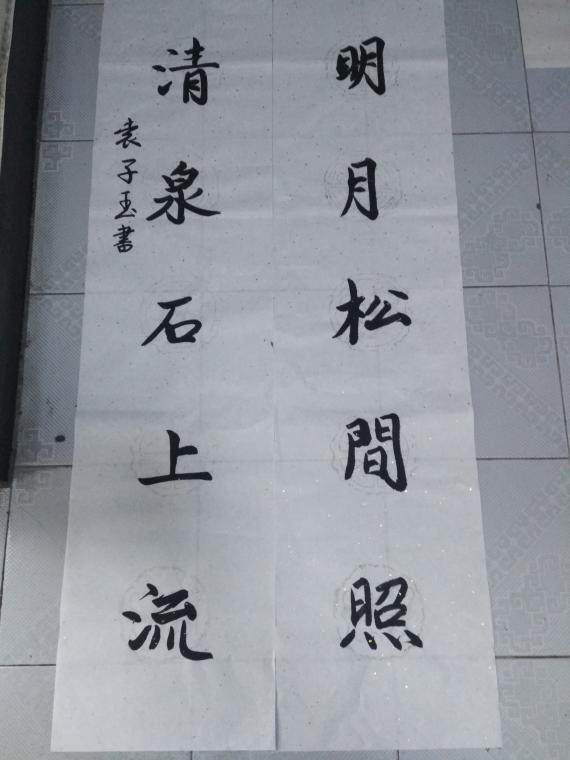 明月松間照
清泉石上流
袁子玉書